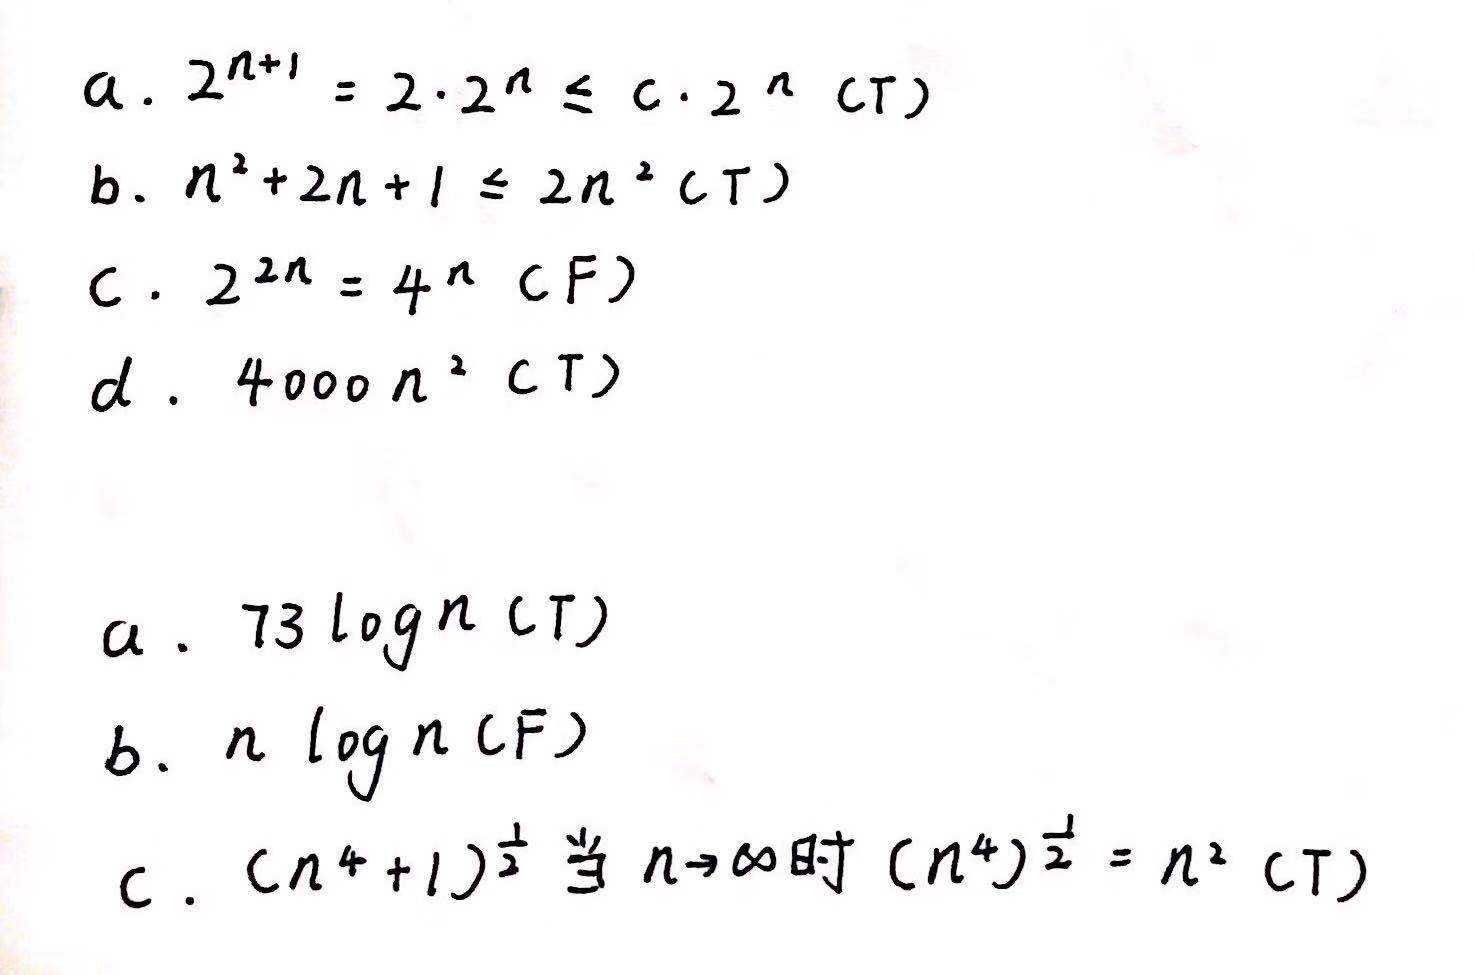 a. 2ⁿ⁺¹ = 2·2ⁿ ≤ c·2ⁿ (T)
b. n²+2n+1 ≤ 2n² (T)
c. 2²ⁿ = 4ⁿ (F)
d. 4000n² (T)
a. 73 log n (T)
b. n log n (F)
c. (n⁴+1)^½ 当 n→∞时 (n⁴)^½ = n² (T)